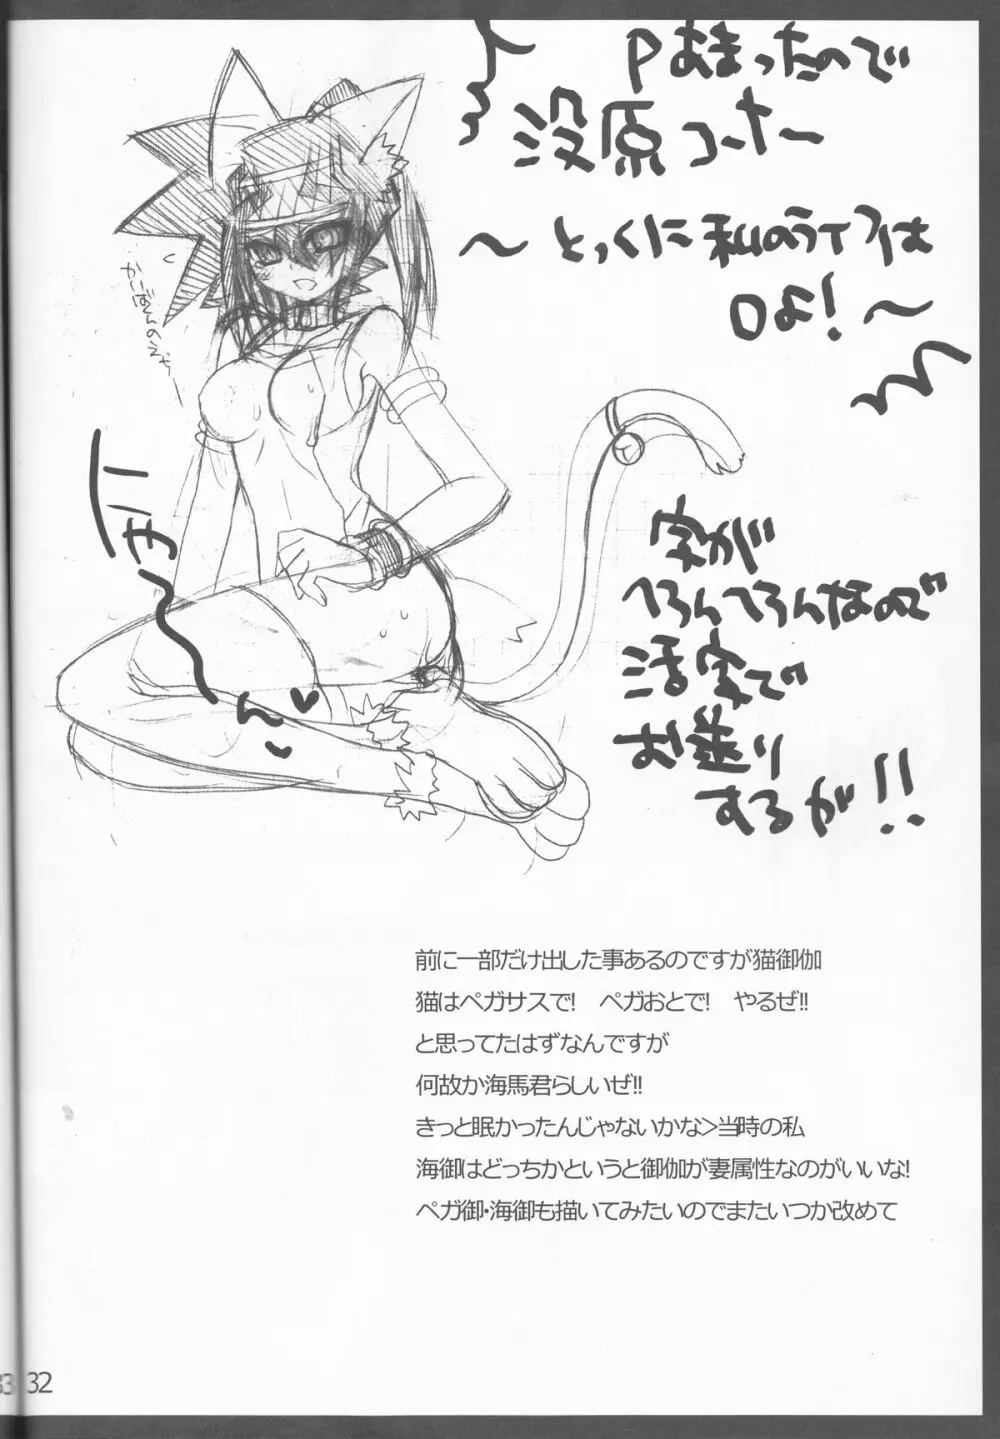 Pあまったので
没原コーナー
～とっくに私のライフは
0よ!～
かいばくんのえっちー
にゃ～ん♥
字が
へろんへろんなので
活字で
お送り
するが!!
前に一部だけ出した事あるのですが猫御伽
猫はペガサスで!　ペガおとで!　やるぜ!!
と思ってたはずなんですが
何故か海馬君らしいぜ!!
きっと眠かったんじゃないかな>当時の私
海御はどっちかというと御伽が妻属性なのがいいな!
ペガ御・海御も描いてみたいのでまたいつか改めて
33 32